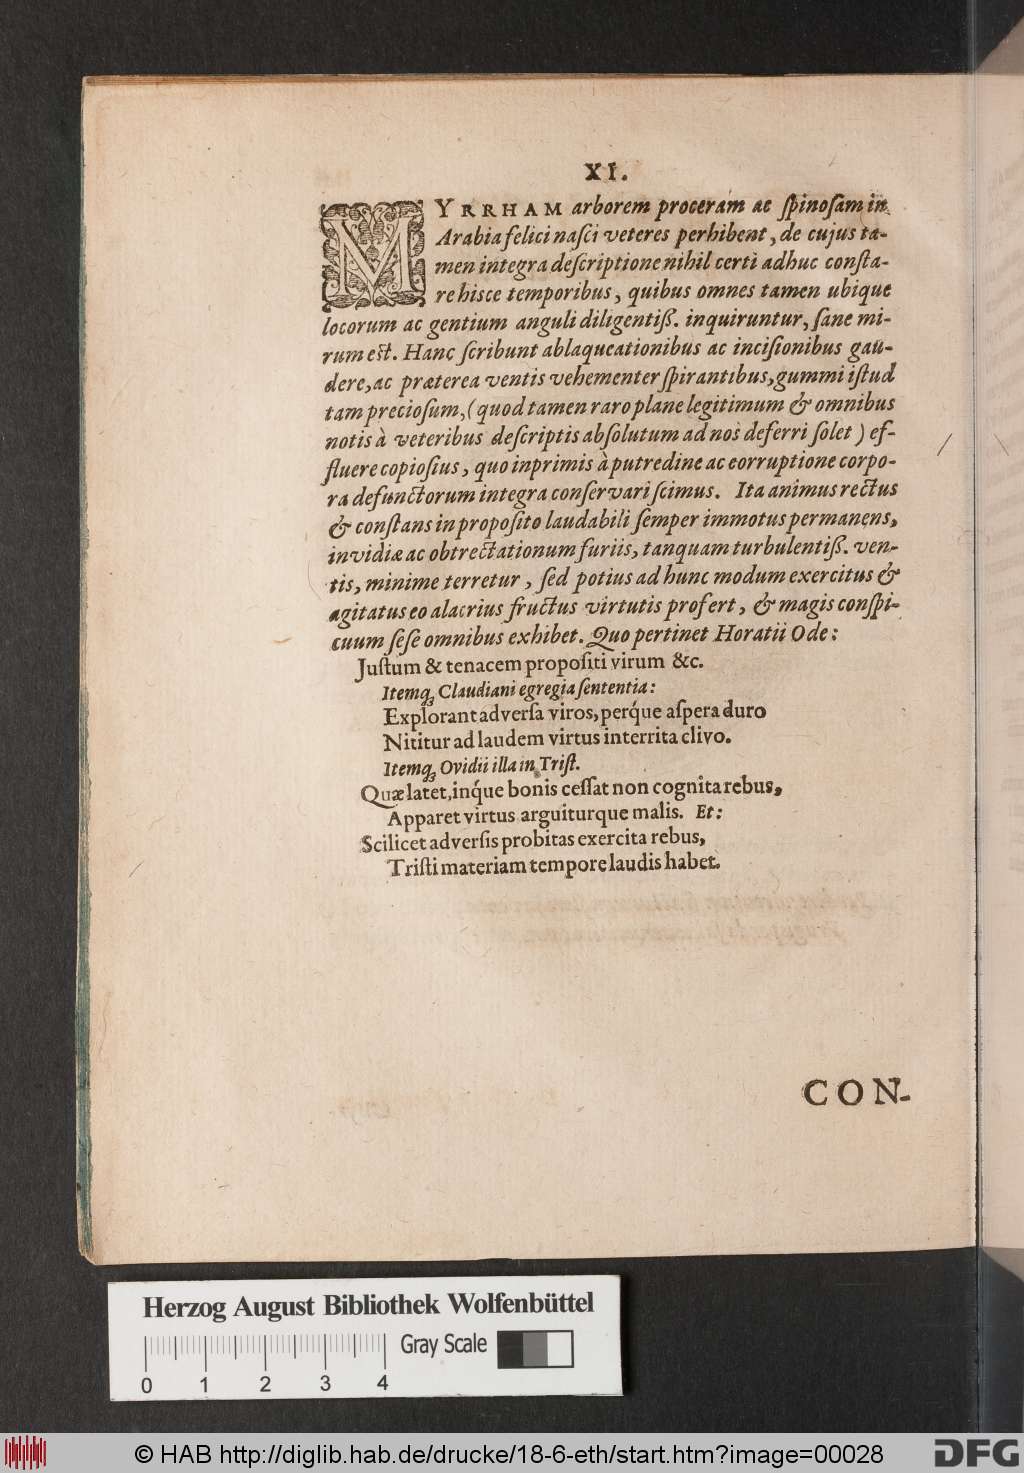 XI.
MYRRHAM arborem proceram ac ſpinoſam in
Arabia felici naſci veteres perhibent, de cujus ta-
men integra deſcriptione nihil certi adhuc conſta-
re hisce temporibus, quibus omnes tamen ubique
locorum ac gentium anguli diligentiß. inquiruntur, ſane mi-
rum est. Hanc ſcribunt ablaqueationibus ac inciſionibus gau-
dere, ac præterea ventis vehementer ſpirantibus, gummi iſtud
tam precioſum, (quod tamen raro plane legitimum & omnibus
notis à veteribus deſcriptis abſolutum ad nos deferri ſolet) ef-
fluere copioſius, quo inprimis à putredine ac corruptione corpo-
ra defunctorum integra conſervari ſcimus. Ita animus rectus
& conſtans in propoſito laudabili ſemper immotus permanens,
invidiæ ac obtrectationum furiis, tanquam turbulentiß. ven-
tis, minime terretur, ſed potius ad hunc modum exercitus &
agitatus eo alacrius fructus virtutis profert, & magis conſpi-
cuum ſeſe omnibus exhibet. Quo pertinet Horatii Ode:
Juſtum & tenacem propoſiti virum &c.
Itemq; Claudiani egregia ſententia:
Explorant adverſa viros, perq́ue aſpera duro
Nititur ad laudem virtus interrita clivo.
Itemq; Ovidii illa in Triſt.
Quæ latet, inq́ue bonis ceſſat non cognita rebus,
Apparet virtus arguiturque malis. Et:
Scilicet adverſis probitas exercita rebus,
Triſti materiam tempore laudis habet.
CON-
Herzog August Bibliothek Wolfenbüttel
Gray Scale
0 1 2 3 4
© HAB http://diglib.hab.de/drucke/18-6-eth/start.htm?image=00028
DFG